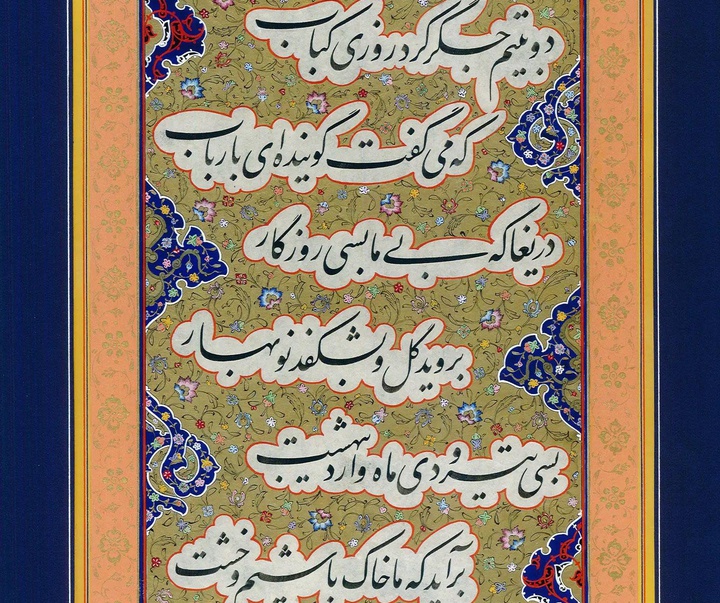 دو بیتم جگر کرد روزی کباب
که می گفت گوینده ای با رباب
دریغا که بی ما بسی روزگار
بروید گل و بشکفد نوبهار
بسی تیر و دی ماه و اردیبهشت
برآید که ما خاک باشیم و خشت